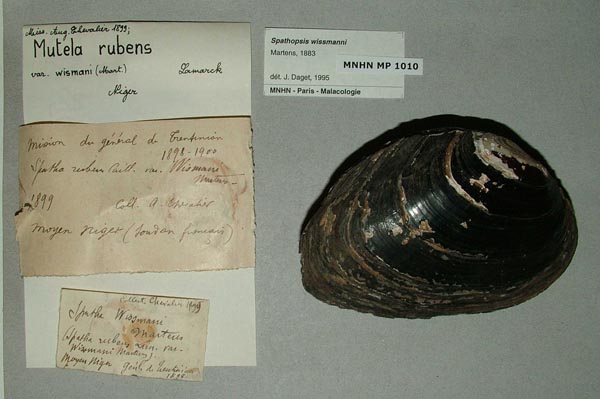 Miss. Aug. Chevalier 1899;
Mutela rubens
var. wismani (Mart.) Lamarck
Niger
Mission du général de Trentinian
1898-1900
Spatha rubens Caill. var. Wismani
Martens
1899 Coll. A. Chevalier
Moyen Niger (Soudan français)
Collect. Chevalier 1899
Spatha Wissmani
Martens
(Spatha rubens var.
Wismani Martens)
Moyen Niger génl. de Trentinian
1899
Spathopsis wissmanni
Martens, 1883
MNHN MP 1010
dét. J. Daget, 1995
MNHN - Paris - Malacologie